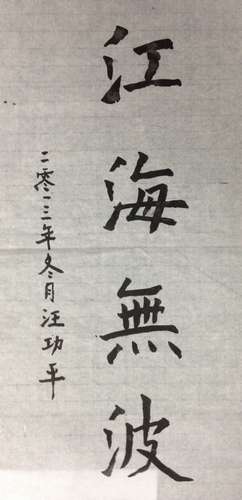 江海無波
二零一三年冬月汪功平